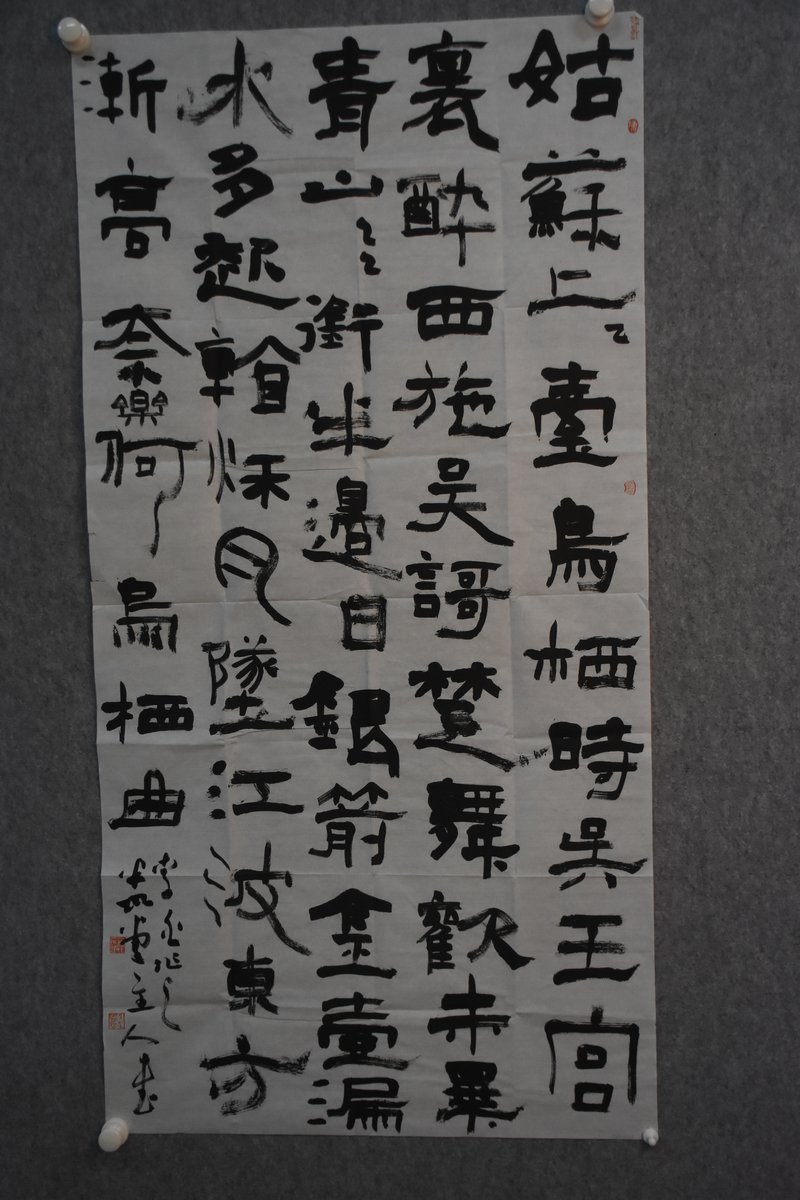 姑蘇上臺烏栖時吳王宮
裏醉西施吳謌楚舞歡未畢
青山銜半邊日銀箭金壺漏
水多起秌月墜江波東方
漸高奈樂何烏栖曲
李白作
堂主人書